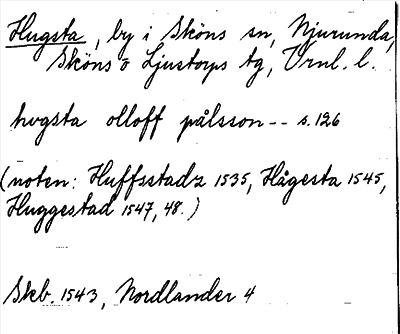 Hugsta, by i Sköns sn, Njurunda,
Sköns o Ljustorps tg, Vrnl. l.
hvgsta olloff pålsson -- s. 126
(noten: Huffsstadz 1535, Hågesta 1545,
Huggestad 1547, 48.)
Skb. 1543, Nordlander 4